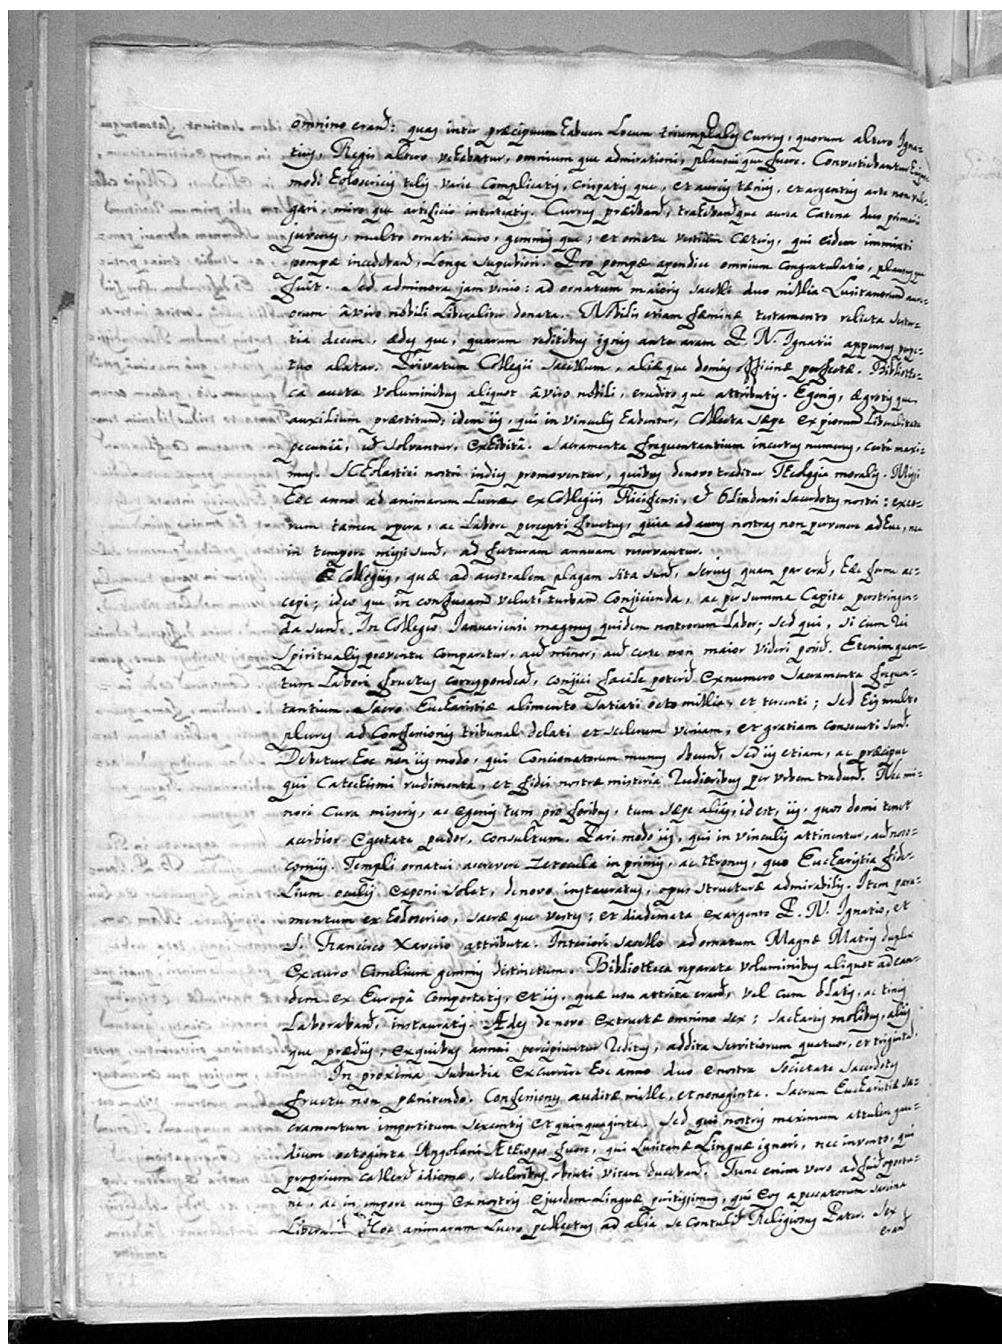 omnino erant: quas inter præcipuum habuere Locum triumphales currus, quorum altero Igna=
tius, Regis altero vehebatur, omnium que admirationi, plausui que fuere. Convestiebantur
modi holosericis telis, varie complicatis, crispatis que, et aureis tæniis, et argenteis arte non vul=
gari, miro que artificio intertextis. Currus præibant, trahebant que aurea catena duo primarii
juvenes, multo ornati auro, gemmis que; et ornatu vestium cæteris, qui eidem immixti
pompæ incedebant, Longe superiori. Pro pompæ apendice omnium congratulatio, plausus que
fuit. Sed ad minora jam venio: ad ornatum maioris sacelli duo millia Lusitanorum aure=
orum à viro nobili Liberaliter donata. Nobilis etiam fæminæ testamento relicta
decem, ædes que, quarum reditibus ignis ante aram P. N. Ignatii appensus perpe=
tuo alatur. Privatum Collegii sacellum, aliæ que domus officinæ perfectæ. Bibliothe=
ca aucta voluminibus aliquot à viro nobili, erudito que attributis. Egenis, ægrotis que
auxilium præstitum; idem iis, qui in vinculis habentur, Collecta sæpe ex piorum Liberalitate
pecuniâ, ut solvantur, exhibitum. Sacramenta frequentantium incertus numerus, certè maxi=
mus. Scholastici nostri indies promoventur, quibus denovo traditur Theologia moralis. Missi
hoc anno ad animarum Lucra ex Collegiis Recifensi, et Olindensi sacerdotes nostri: exco=
rum tamen opera, ac Labore percepti fructus, quia ad aures nostras non pervenere adhuc, nec
in tempore missi sunt, ad futuram annuam reservantur.
E Collegiis, quæ ad australem plagam sita sunt, serius quam par erat, hæc ferme ac=
cepi; ideo que in confusam veluti turbam conjicienda, ac per summa Capita perstringen=
da sunt. In Collegio Januariensi magnus quidem nostrorum Labor; sed qui, si cum rei
spiritualis proventu comparetur, aut minor, aut certe non maior videri possit. Etenim quan=
tum Labori fructus correspondeat, conjici facile poterit ex numero Sacramenta frequen=
tantium. Sacro Eucharistiæ alimento satiati octo millia, et trecenti; sed his multo
plures ad Confessionis tribunal delati et scelerum veniam, et gratiam consecuti sunt.
Debetur hoc non iis modo, qui Concionatorum munus obeunt, sed iis etiam, ac præcipue
qui Catechismi rudimenta, et fidei nostræ misteria rudioribus per urbem tradunt. Nec mi=
nori cura miseris, ac egenis tum pro foribus, tum sæpe aliis, id est, iis, quos domi tenet
acerbior egestate pudor, consultum. Pari modo iis, qui in vinculis attinentur, aut noso=
comiis. Templi ornatui accrevere in primis, ac thronus, quo Eucharistia fide=
lium oculis exponi solet, denovo instauratus, opus structuræ admirabilis. Item para=
mentum ex holoserico, sacræ que vestes; et diademata ex argento P. N. Ignatio, et
S. Francisco Xaverio attributa. Interiori sacello ad ornatum Magnæ Matris duplex
ex auro Cimelium gemmis distinctum. Bibliotheca reparata voluminibus aliquot ad ean=
dem ex Europâ comportatis, et iis, quæ usu attrita erant, vel cum blatis, ac tineis
Laborabant, instauratis. Ædes denovo extructæ omnino sex; sacharis molibus, aliis
que prædiis, ex quibus annui percipiuntur reditus, addita servitiorum quatuor, et triginta
In proxima suburbia excurrêre hoc anno duo e nostra Societate Sacerdotes
fructu non pænitendo. Confessiones auditæ mille, et nonaginta. Sacrum Eucharistiæ sa=
cramentum impertitum sexcentis et quinquaginta. Sed qui nostris maximum attulere gau=
dium octoginta Angolani Æthiopes fuere, qui Lusitanæ Linguæ ignari, nec invento, qui
proprium calleret idioma, sceleribus obruti vitam ducebant. Tunc enim vero adfuit opportu=
ne, ac in tempore unus ex nostris ejusdem Linguæ peritissimus, qui eos a peccatorum
Hoc animarum Lucro pellectus ad alia se contulit Religiosus Pater. Sex
erant